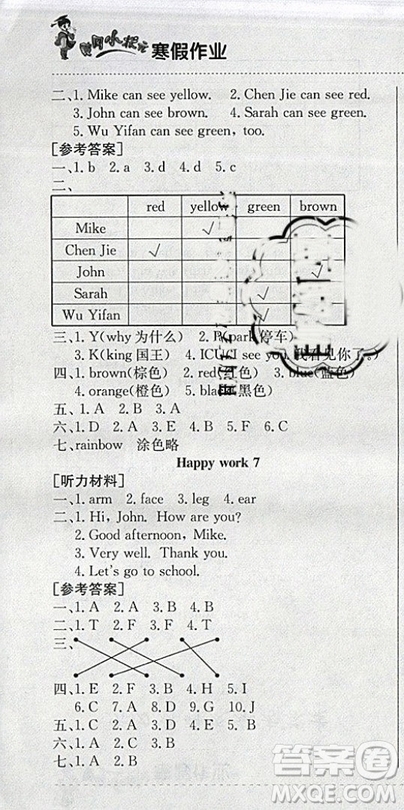 黄冈小状元 寒假作业
二、1. Mike can see yellow. 2. Chen Jie can see red.
3. John can see brown. 4. Sarah can see green.
5. Wu Yifan can see green, too.
[参考答案]
一、1. b 2. a 3. d 4. d 5. c
二、
red yellow green brown
Mike ✓
Chen Jie ✓
John ✓
Sarah ✓
Wu Yifan ✓
三、1. Y(why 为什么) 2. P(park 停车)
3. K(king 国王) 4. ICU(I see you 我看见你了。)
四、1. brown(棕色) 2. red(红色) 3. blue(蓝色)
4. orange(橙色) 5. black(黑色)
五、1. A 2. A 3. B 4. B
六、1. D 2. C 3. A 4. B
七、rainbow 涂色略
Happy work 7
[听力材料]
一、1. arm 2. face 3. leg 4. ear
二、1. Hi, John. How are you?
2. Good afternoon, Mike.
3. Very well. Thank you.
4. Let's go to school.
[参考答案]
一、1. A 2. A 3. B 4. B
二、1. T 2. F 3. F 4. T
三、
四、1. E 2. F 3. A 4. H 5. B
6. C 7. I 8. D 9. G 10. J
五、1. C 2. D 3. A 4. B
六、1. A 2. B 3. A 4. A
七、1. B 2. A 3. C 4. D
答案圈
MXQE.COM